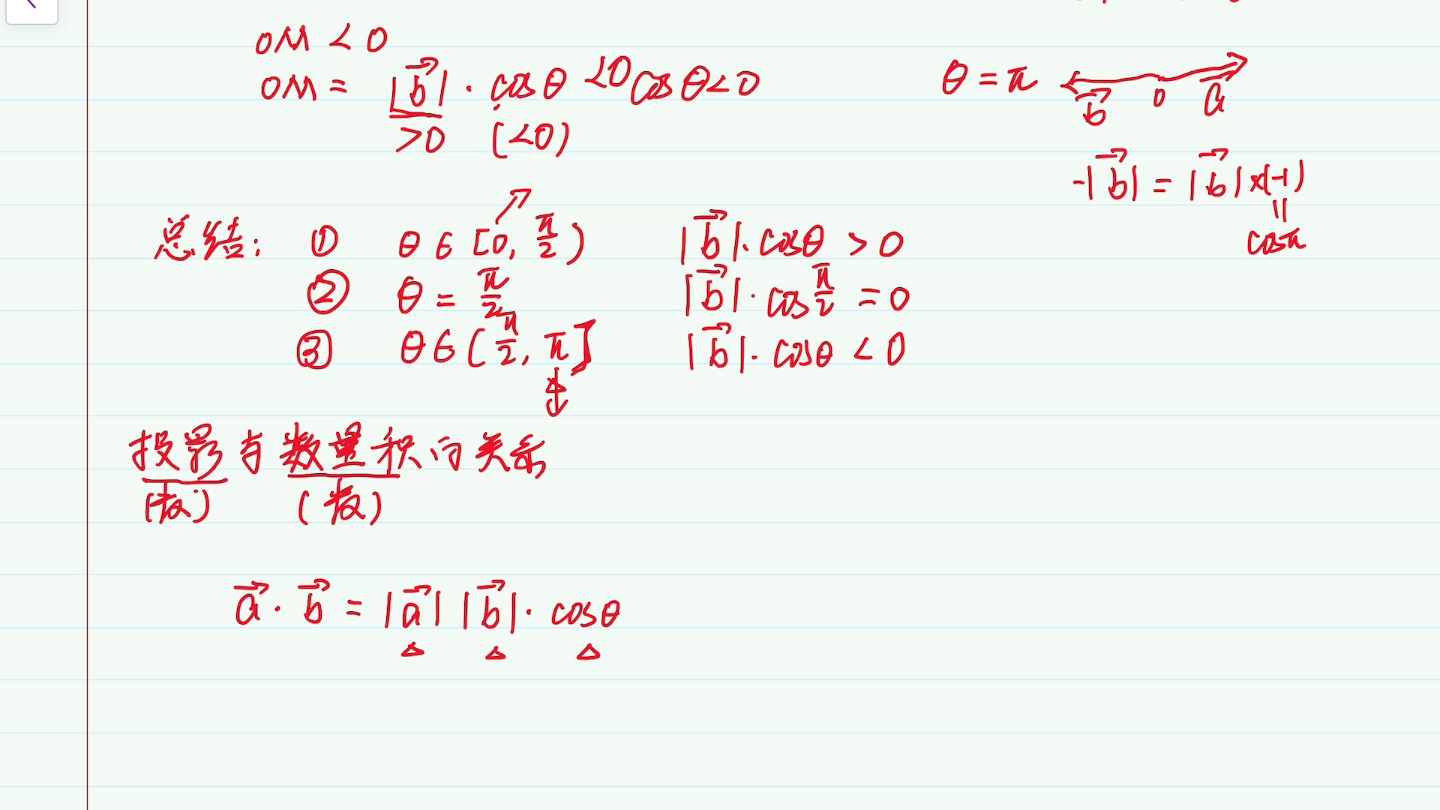 OM < 0
OM = |b⃗| · cosθ <0 cosθ<0
>0 (<0)
θ = π b⃗ 0 a⃗
-|b⃗| = |b⃗|×(-1)
=
cosπ
总结: ① θ∈[0, π/2) |b⃗|·cosθ > 0
② θ = π/2 |b⃗|·cos π/2 = 0
③ θ∈(π/2, π] |b⃗|·cosθ < 0
投影与数量积的关系
(数) (数)
a⃗ · b⃗ = |a⃗| |b⃗| · cosθ